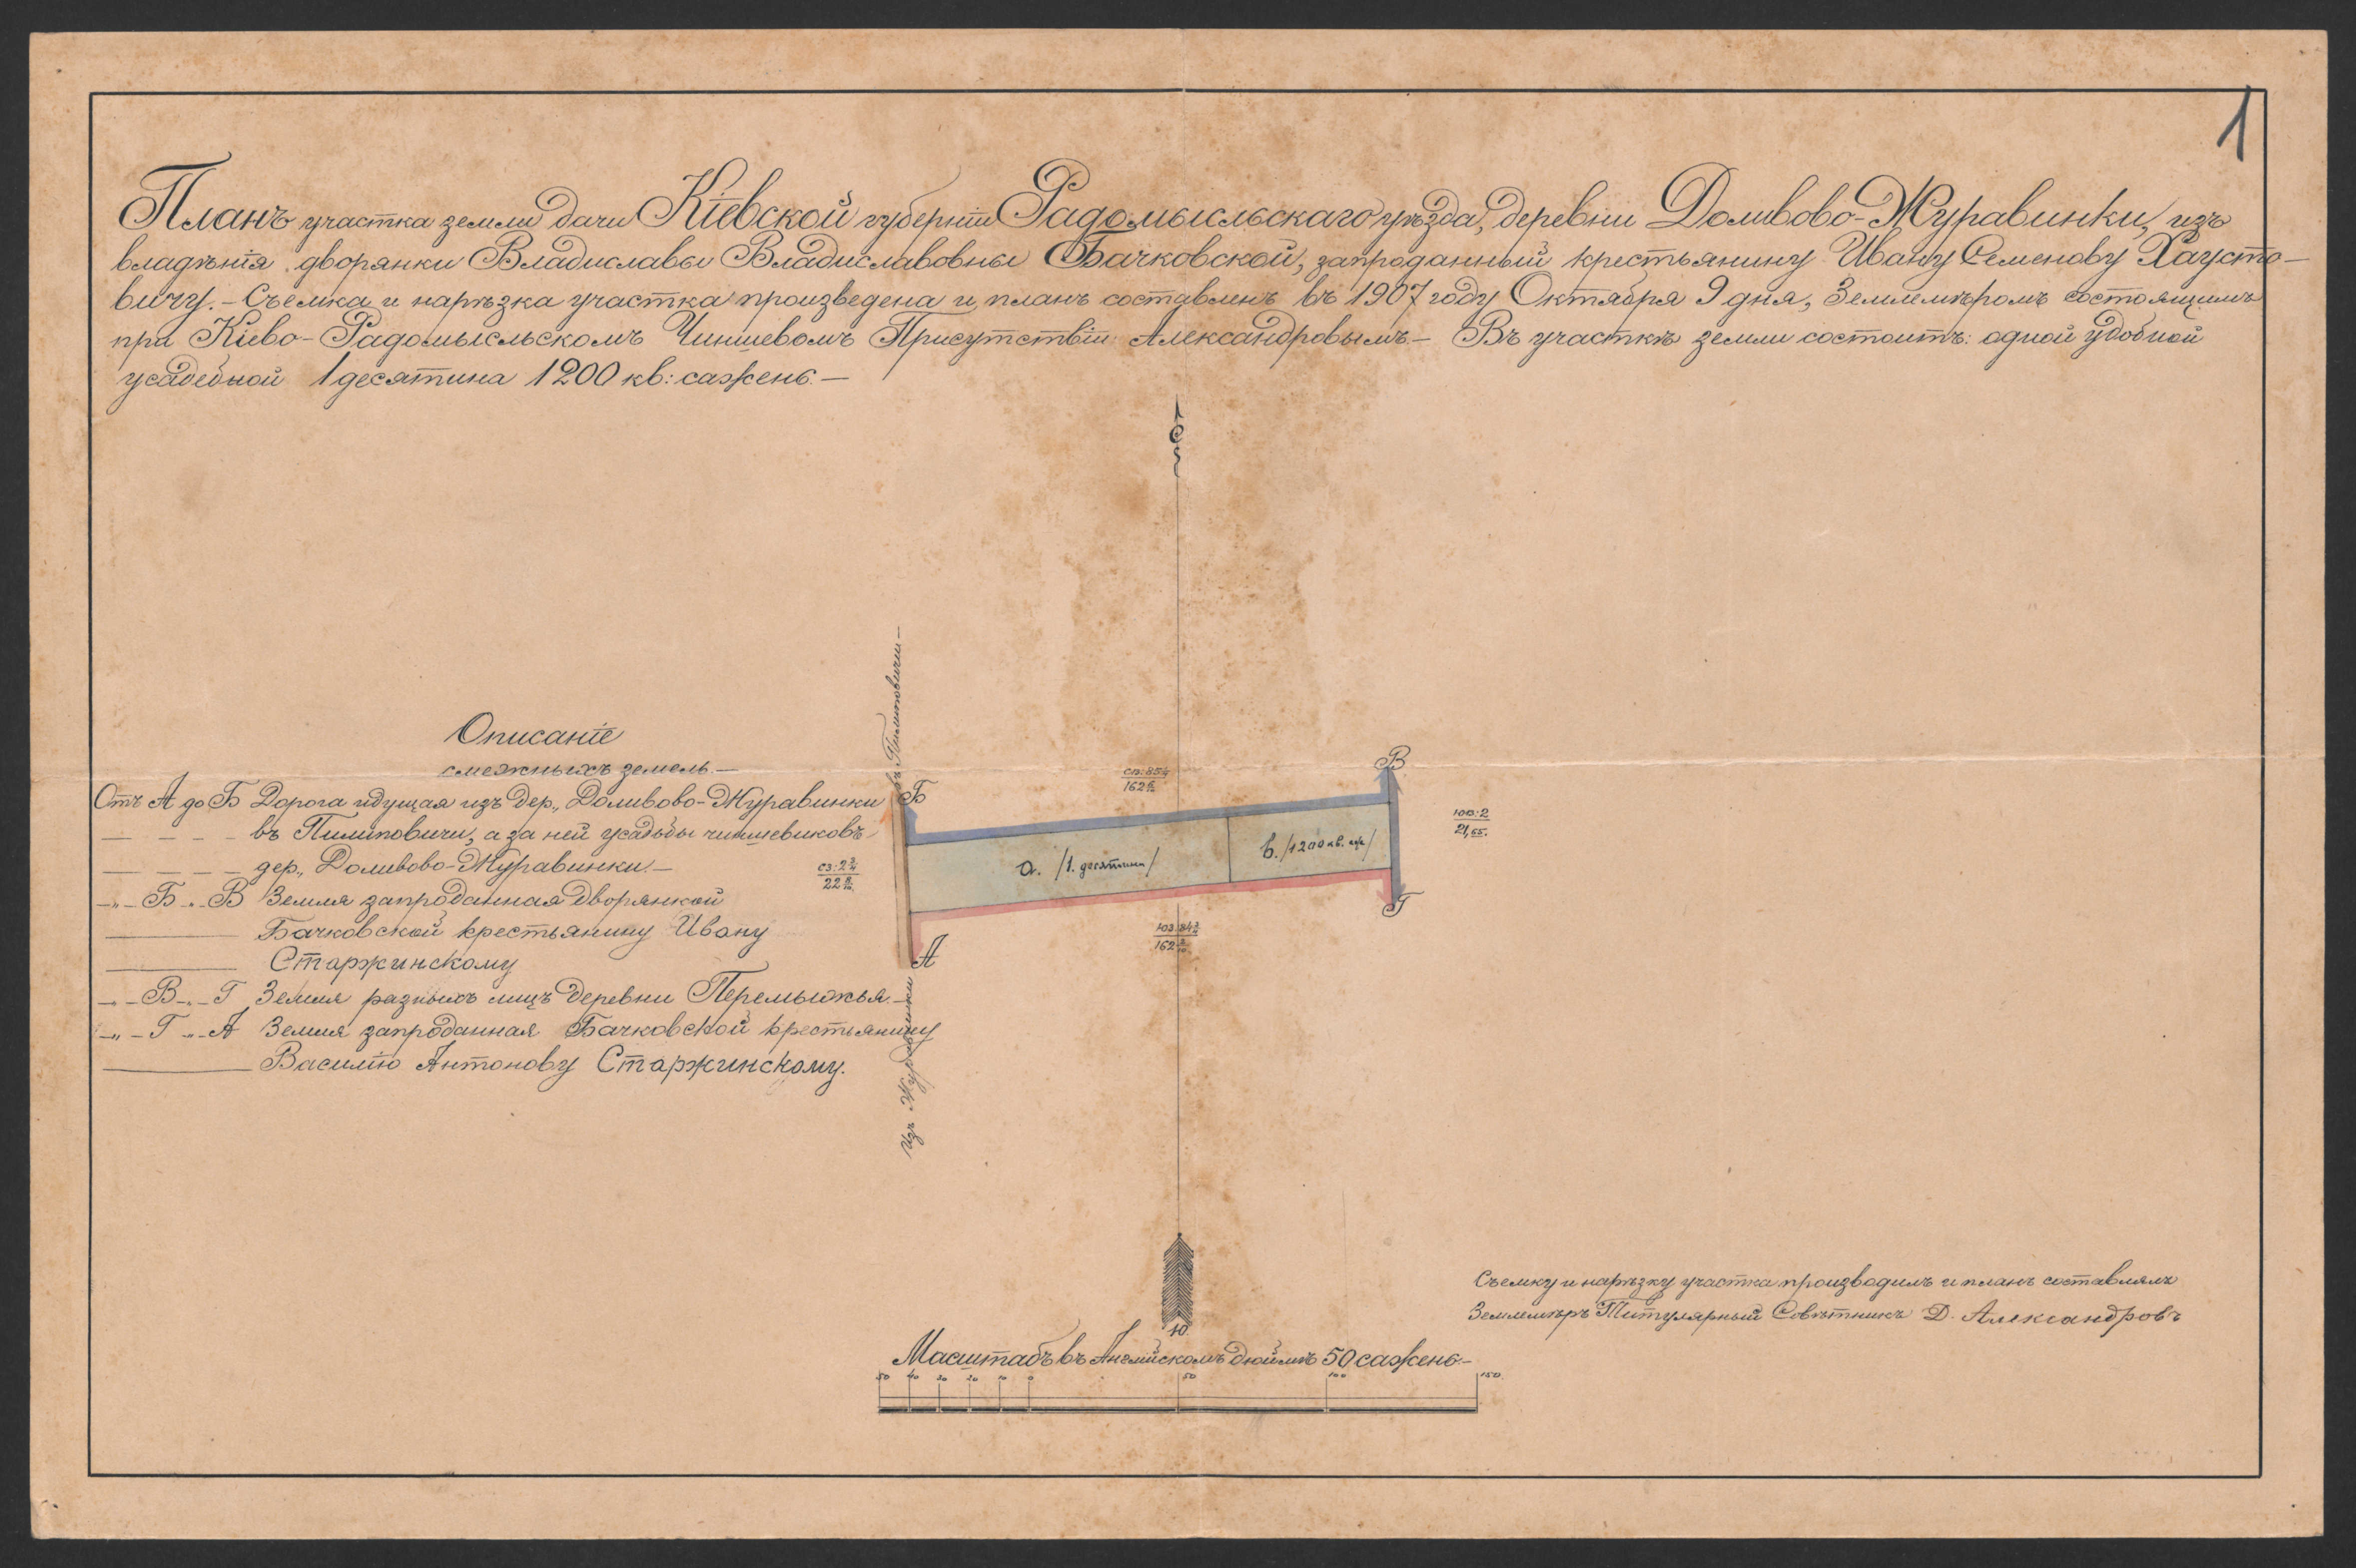 1
Планъ участка земли дачи Кіевской губерніи Радомысльскаго уѣзда, деревни Доливово-Журавинки, изъ
владѣнія дворянки Владиславы Владиславовны Бачковской, запроданный крестьянину Ивану Семенову Хаусто-
вичу. – Съемка и нарѣзка участка произведена и планъ составленъ въ 1907 году Октября 9 дня, Землемѣромъ состоящимъ
при Кіево-Радомысльскомъ Чиншевомъ Присутствіи Александровымъ. – Въ участкѣ земли состоитъ: одной удобной
усадебной 1 десятина 1200 кв: сажень. –
С
въ Пилиповичи –
Описаніе
смежныхъ земель. –
Отъ А до Б Дорога идущая изъ дер., Доливово-Журавинки
въ Пилиповичи, а за ней усадьбы чиншевиковъ
дер., Доливово-Журавинки. –
–„– Б „ В Земля запроданная дворянкой
Бачковской крестьянину Ивану
Старжинскому
–„– В –„– Г Земля разныхъ лицъ деревни Перемыжья. –
–„– Г –„– А Земля запроданная Бачковской крестьянину
Василію Антонову Старжинскому.
Б
В
СВ: 85¼
162
ЮВ: 2
21,65.
а. /1. десятина/
в. /1200 кв. саж/
СЗ: 2¾
22
ЮЗ: 84¾
162
Г
А
Изъ Журавинки
Ю.
Масштабъ въ Англійскомъ дюймѣ 50 сажень. –
50 40 30 20 10 0 50 100 150
Съемку и нарѣзку участка производилъ и планъ составлялъ
Землемѣръ Титулярный Совѣтникъ Д. Александровъ